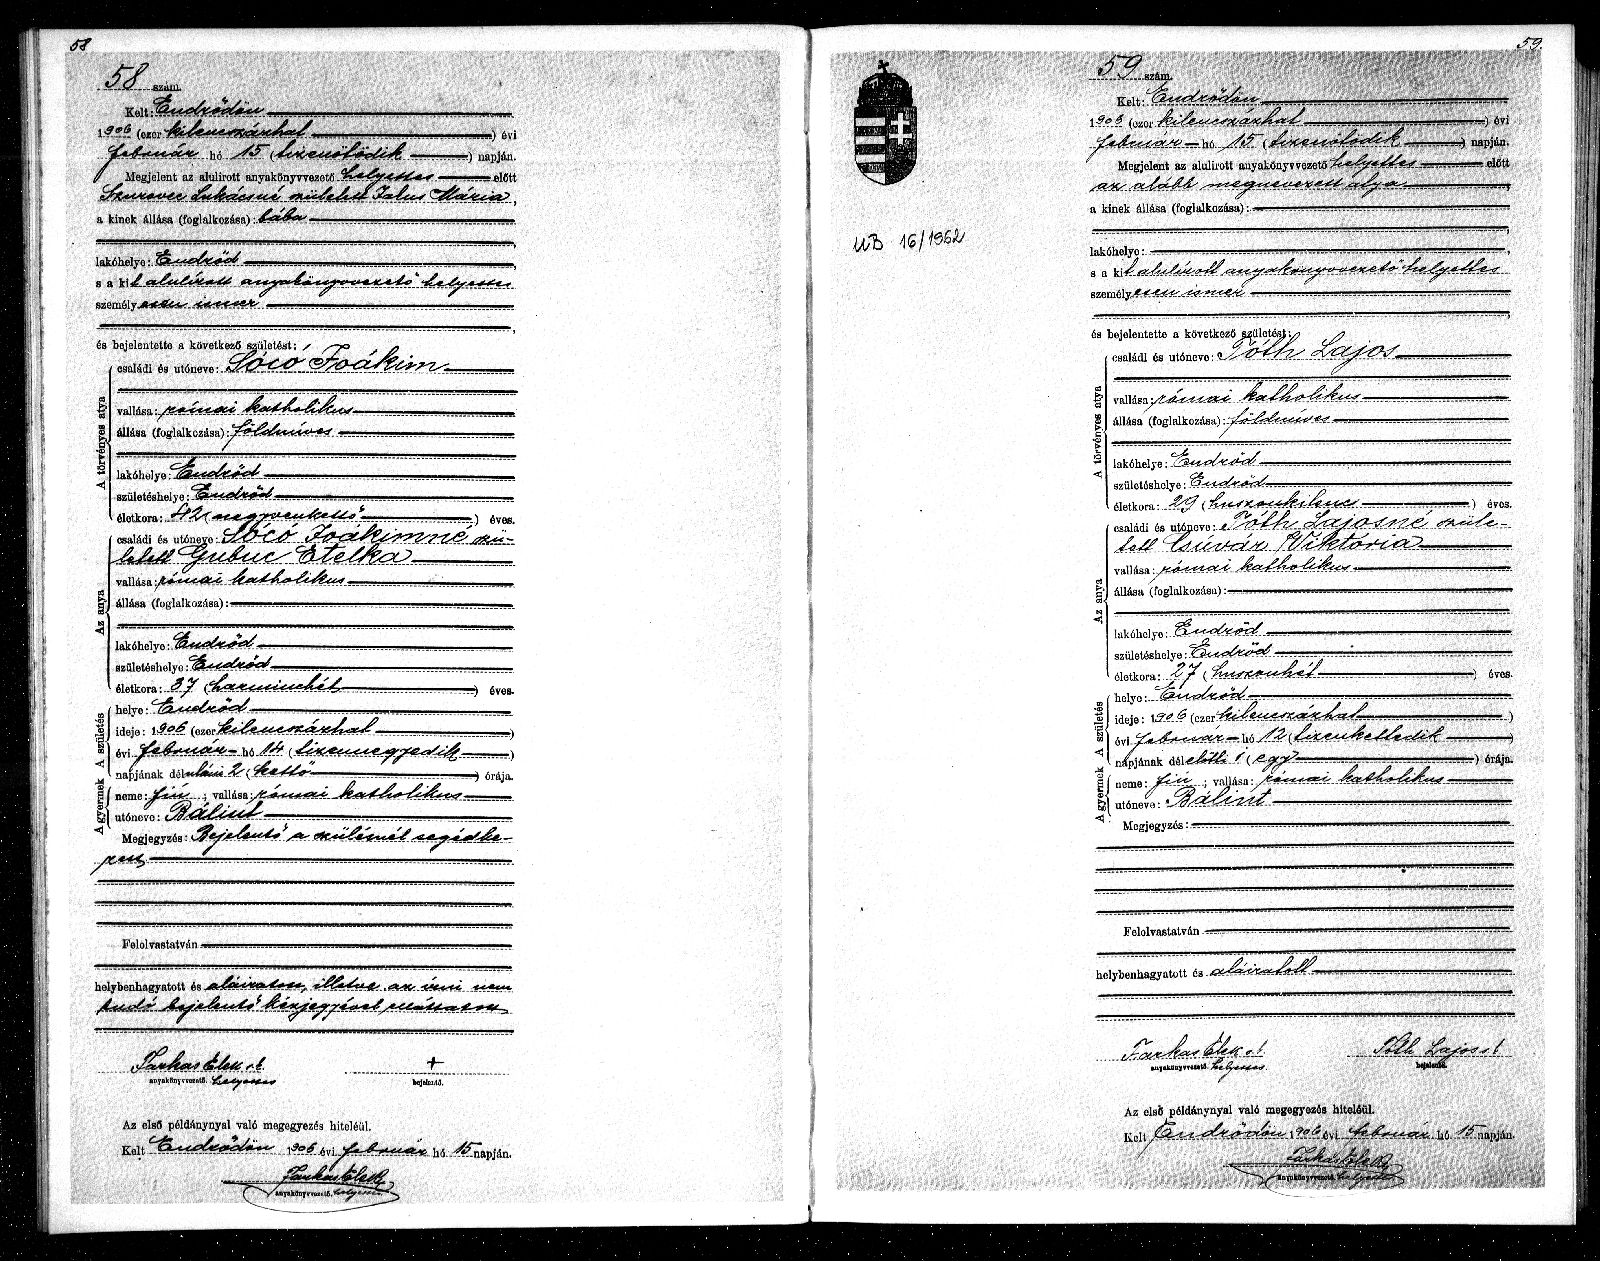 58
58 szám.
Kelt: Endrődön
1906 (ezer kilencszázhat) évi
február hó 15 (tizenötödik) napján.
Megjelent az alulirott anyakönyvvezető helyettes előtt
Lukácsné született Mária,
a kinek állása (foglalkozása): bába
lakóhelye: Endrőd
s a kit alulírott anyakönyvvezető helyettes
személyesen ismer
és bejelentette a következő születést:
A törvényes atya
családi és utóneve: Sóczó Joákim
vallása: római katholikus
állása (foglalkozása): földmíves
lakóhelye: Endrőd
születéshelye: Endrőd
életkora: 42 (negyvenkettő) éves.
Az anya
családi és utóneve: Sóczó Joákimné szü-
letett Gubuc Etelka
vallása: római katholikus
állása (foglalkozása):
lakóhelye: Endrőd
születéshelye: Endrőd
életkora: 37 (harminchét) éves.
A gyermek A születés
helye: Endrőd
ideje: 1906 (ezer kilencszázhat)
évi február hó 14 (tizennegyedik)
napjának délutáni 2 (kettő) órája.
neme: fiú; vallása: római katholikus
utóneve: Bálint
Megjegyzés: Bejelentő a szülésnél segédke-
zett
Felolvastatván
helybenhagyatott és aláiratott, illetve az írni nem
tudó bejelentő kézjegyével elláttatott
Farkas Elek s.k. +
anyakönyvvezető. helyettes bejelentő.
Az első példánynyal való megegyezés hiteléül.
Kelt Endrődön 1906 évi február hó 15 napján.
Farkas Elek
anyakönyvvezető. helyettes
59.
59 szám.
Kelt: Endrődön
1906 (ezer kilencszázhat) évi
február hó 15 (tizenötödik) napján.
Megjelent az alulirott anyakönyvvezető helyettes előtt
az alább megnevezett atya
a kinek állása (foglalkozása):
UB 16/1962
lakóhelye:
s a kit alulírott anyakönyvvezető helyettes
személyesen ismer
és bejelentette a következő születést:
A törvényes atya
családi és utóneve: Tóth Lajos
vallása: római katholikus
állása (foglalkozása): földmíves
lakóhelye: Endrőd
születéshelye: Endrőd
életkora: 29 (huszonkilenc) éves.
Az anya
családi és utóneve: Tóth Lajosné szüle-
tett Csúvár Viktória
vallása: római katholikus
állása (foglalkozása):
lakóhelye: Endrőd
születéshelye: Endrőd
életkora: 27 (huszonhét) éves.
A gyermek A születés
helye: Endrőd
ideje: 1906 (ezer kilencszázhat)
évi február hó 12 (tizenkettedik)
napjának délelőtti 1 (egy) órája.
neme: fiú; vallása: római katholikus
utóneve: Bálint
Megjegyzés:
Felolvastatván
helybenhagyatott és aláiratott
Farkas Elek s.k. Tóth Lajos s.k.
anyakönyvvezető. helyettes bejelentő.
Az első példánynyal való megegyezés hiteléül.
Kelt Endrődön 1906 évi február hó 15 napján.
Farkas Elek
anyakönyvvezető. helyettes